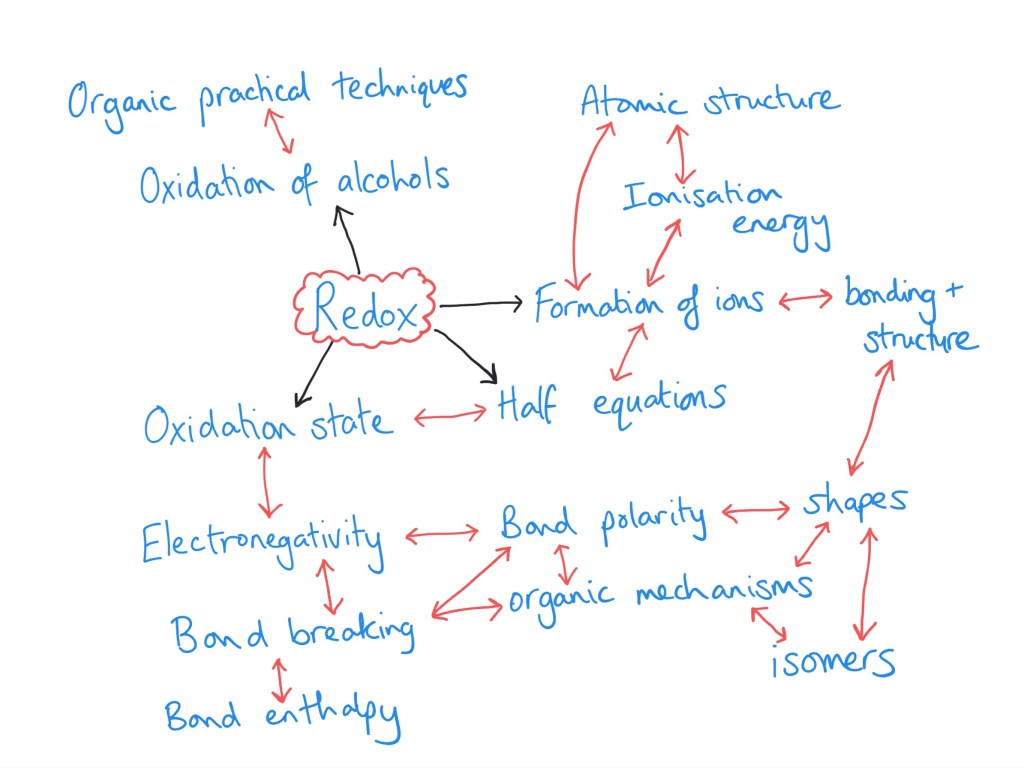 Organic practical techniques
Atomic structure
Oxidation of alcohols
Ionisation
energy
Redox
Formation of ions
bonding +
structure
Oxidation state
Half equations
Electronegativity
Bond polarity
shapes
organic mechanisms
Bond breaking
isomers
Bond enthalpy